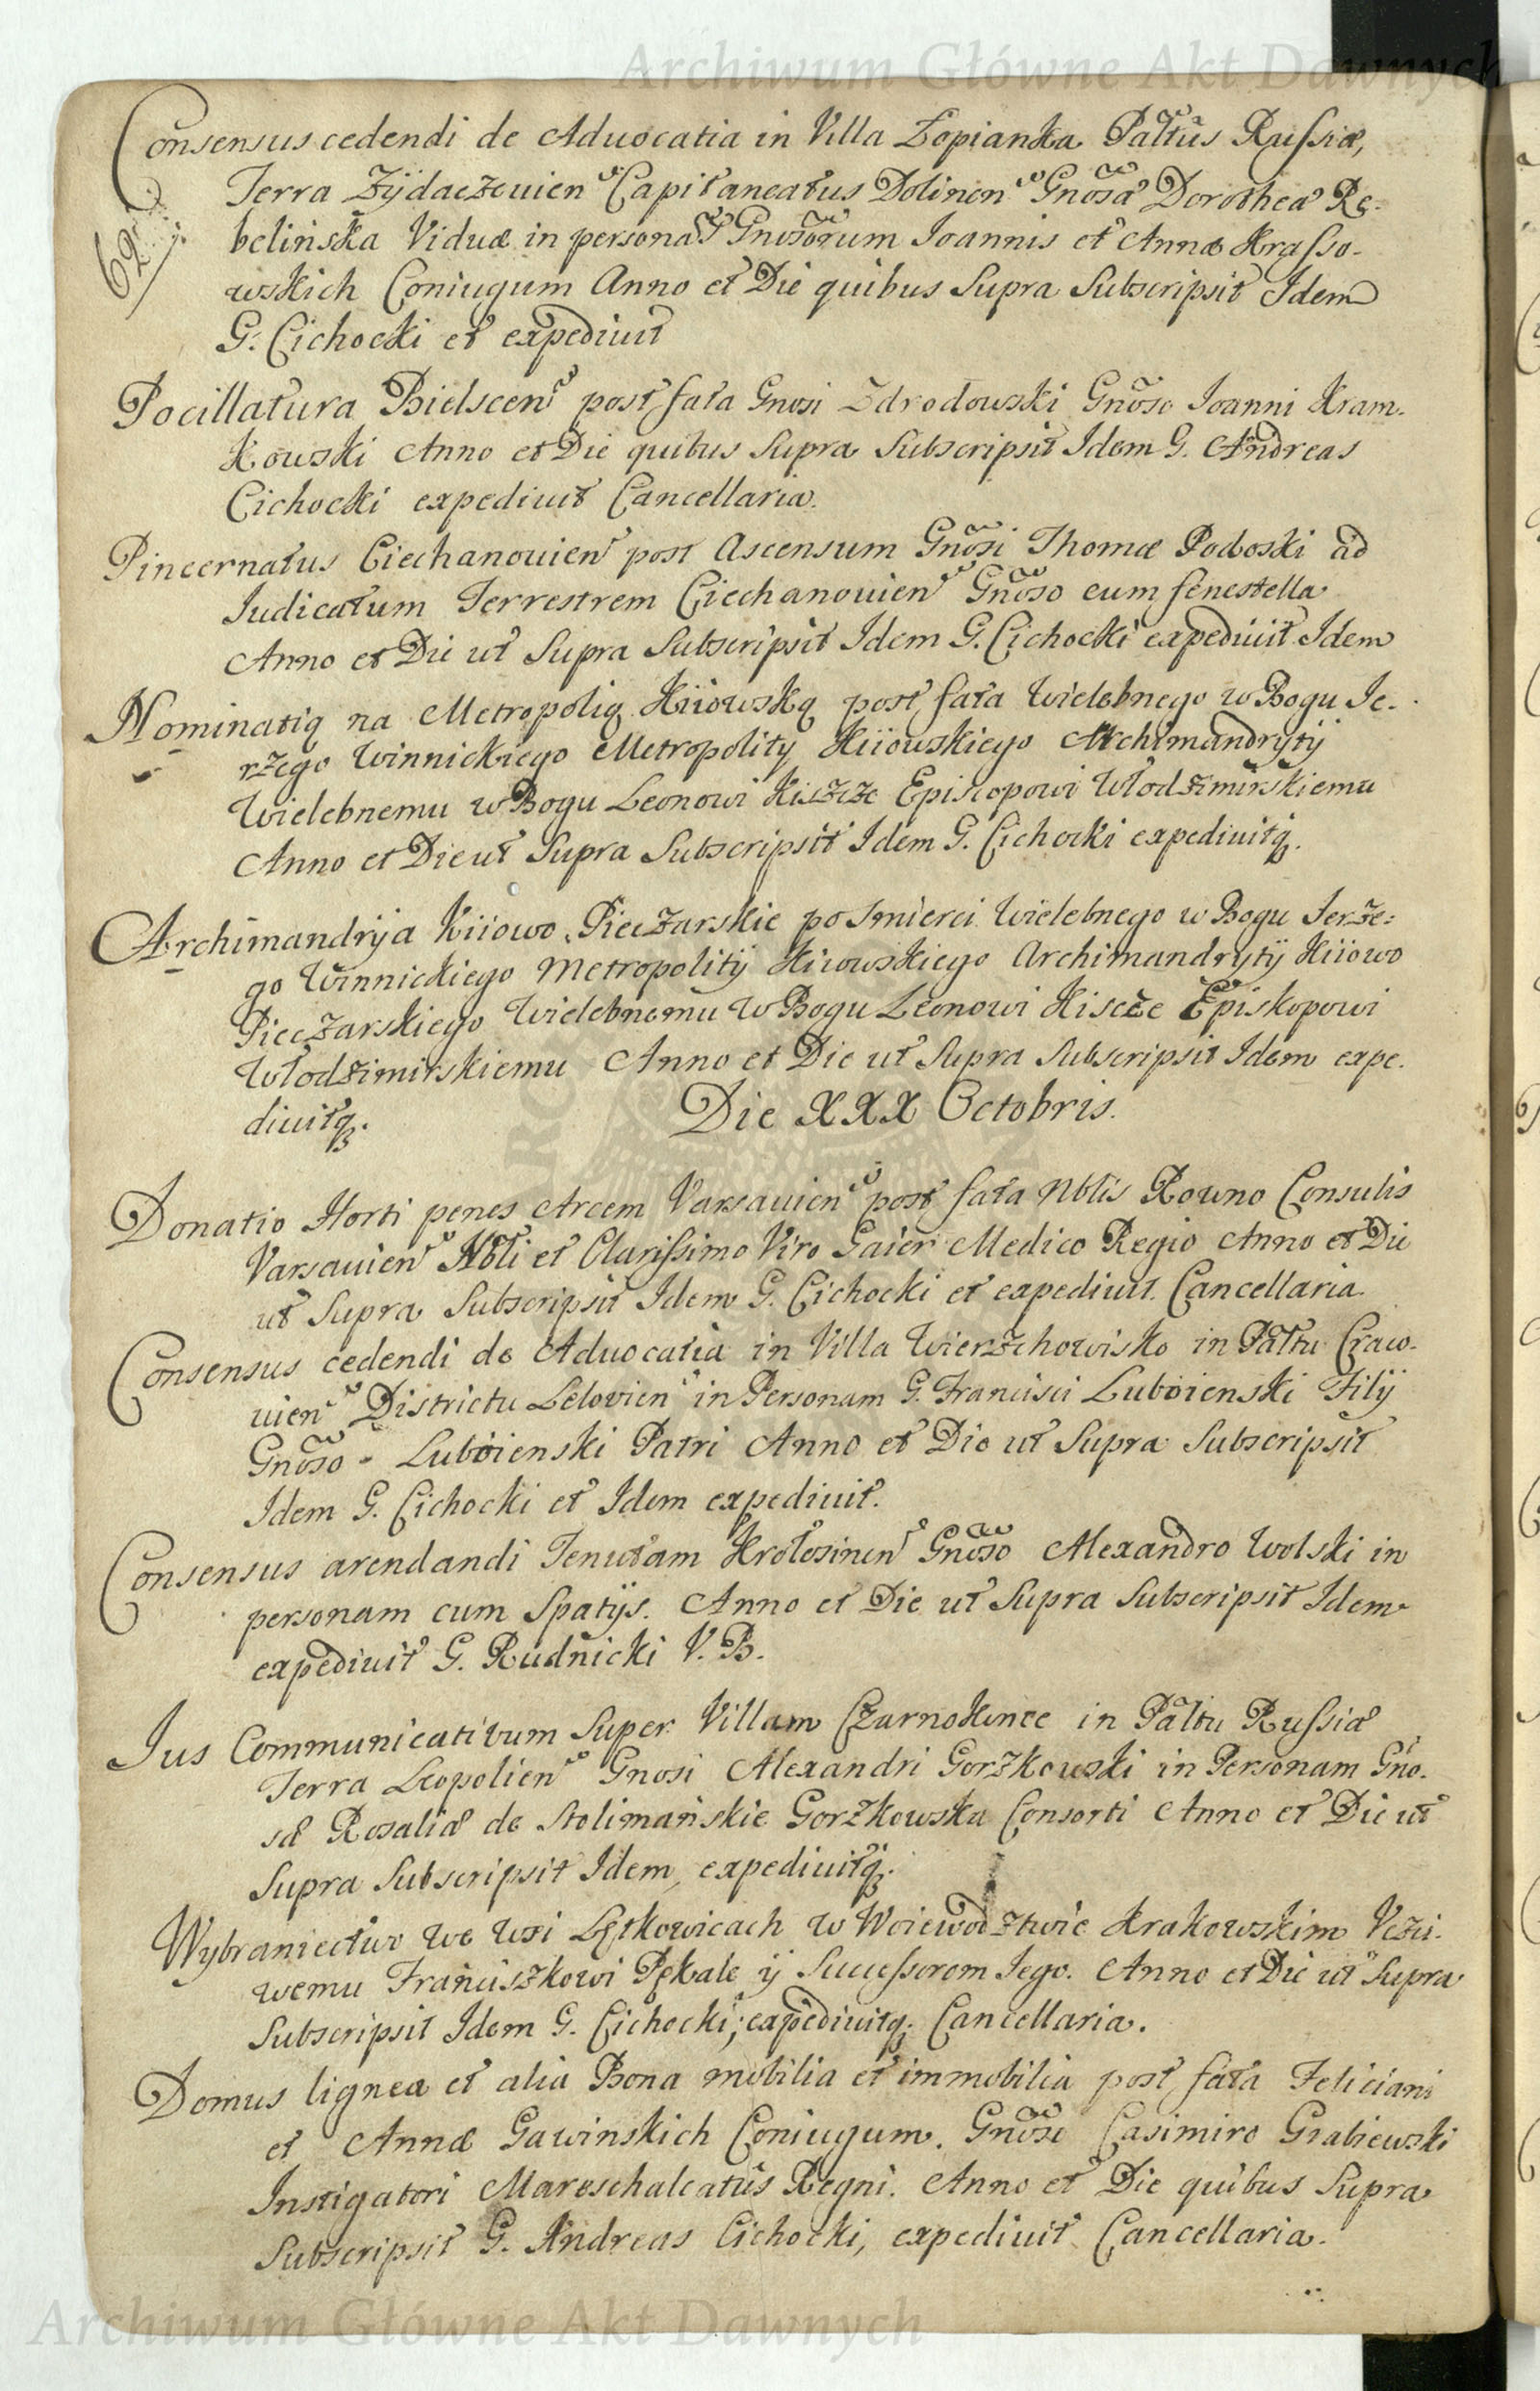 Archiwum Główne Akt Dawnych
Consensus cedendi de Advocatia in Villa Łopianka Paltus Russiæ,
Terra Zÿdaczovien Capitaneatus Dolinen Gnosa Dorothea Re-
belińska Viduæ in persona Gnosorum Joannis et Annæ Krasso-
wskich Coniugum Anno et Die quibus Supra Subscripsit Idem
G. Cichocki et expediuit
62
Pocillatura Bielscen post fata Gnosi Zdrodowski Gnoso Joanni Kram-
kowski Anno et Die quibus Supra Subscripsit Idem G. Andreas
Cichocki expediuit Cancellaria.
Pincernatus Ciechanouien post Ascensum Gnosi Thomæ Podoski ad
Iudicatum Terrestrem Ciechanouien Gnoso cum fenestella
Anno et Die ut Supra Subscripsit Idem G. Cichocki expediuit Idem
Nominatią na Metropolią Kiiowską post fata Wielebnego w Bogu Je-
rzego Winnickiego Metropolity Kiiowskiego Archimandrytÿ
Wielebnemu w Bogu Leonowi Kiszcze Episcopowi Włodzimirskiemu
Anno et Die ut Supra Subscripsit Idem G. Cichocki expediuitq.
Archimandrÿa Kiiowo Pieczarskie po Smierci Wielebnego w Bogu Jerze:
go Winnickiego Metropolitÿ Kiiowskiego Archimandrytÿ Kiiowo
Pieczarskiego Wielebnemu w Bogu Leonowi Kiscze Episkopowi
Włodzimirskiemu Anno et Die ut Supra Subscripsit Idem expe-
diuitq.
Die XXX Octobris.
Donatio Horti penes Arcem Varsauien post fata Nblis Rowno Consulis
Varsauien Nbli et Clarissimo Viro Gaier Medico Regio Anno et Die
ut Supra Subscripsit Idem G. Cichocki et expediuit Cancellaria.
Consensus cedendi de Advocatia in Villa Wierzchowisko in Paltu Craco-
uien Districtu Lelovien in Personam G. Francisci Luboienski Filÿ
Gnoso - Luboienski Patri Anno et Die ut Supra Subscripsit
Idem G. Cichocki et Idem expediuit.
Consensus arendandi Tenutam Krotosinen Gnoso Alexandro Wolski in
personam cum Spatÿs. Anno et Die ut Supra Subscripsit Idem
expediuit G. Rudnicki V. B.
Ius Communicativum Super Villam Czarnokonce in Paltu Russiæ
Terra Leopolien Gnosi Alexandri Gorzkowski in Personam Gno-
sæ Rosaliæ de Stolimańskie Gorzkowska Consorti Anno et Die ut
Supra Subscripsit Idem, expediuitq.
Wybraniectwo we wsi Łętkowicach w Woiewodztwie Krakowskim Vczci-
wemu Franciszkowi Pękale ÿ Successorom Jego. Anno et Die ut Supra
Subscripsit Idem G. Cichocki; expediuitq. Cancellaria.
Domus lignea et alia Bona mobilia et immobilia post fata Feliciani
et Annæ Gawinskich Coniugum. Gnoso Casimiro Grabiewski
Instigatori Mareschalcatus Regni. Anno et Die quibus Supra
Subscripsit G. Andreas Cichocki, expediuit Cancellaria.
Archiwum Główne Akt Dawnych